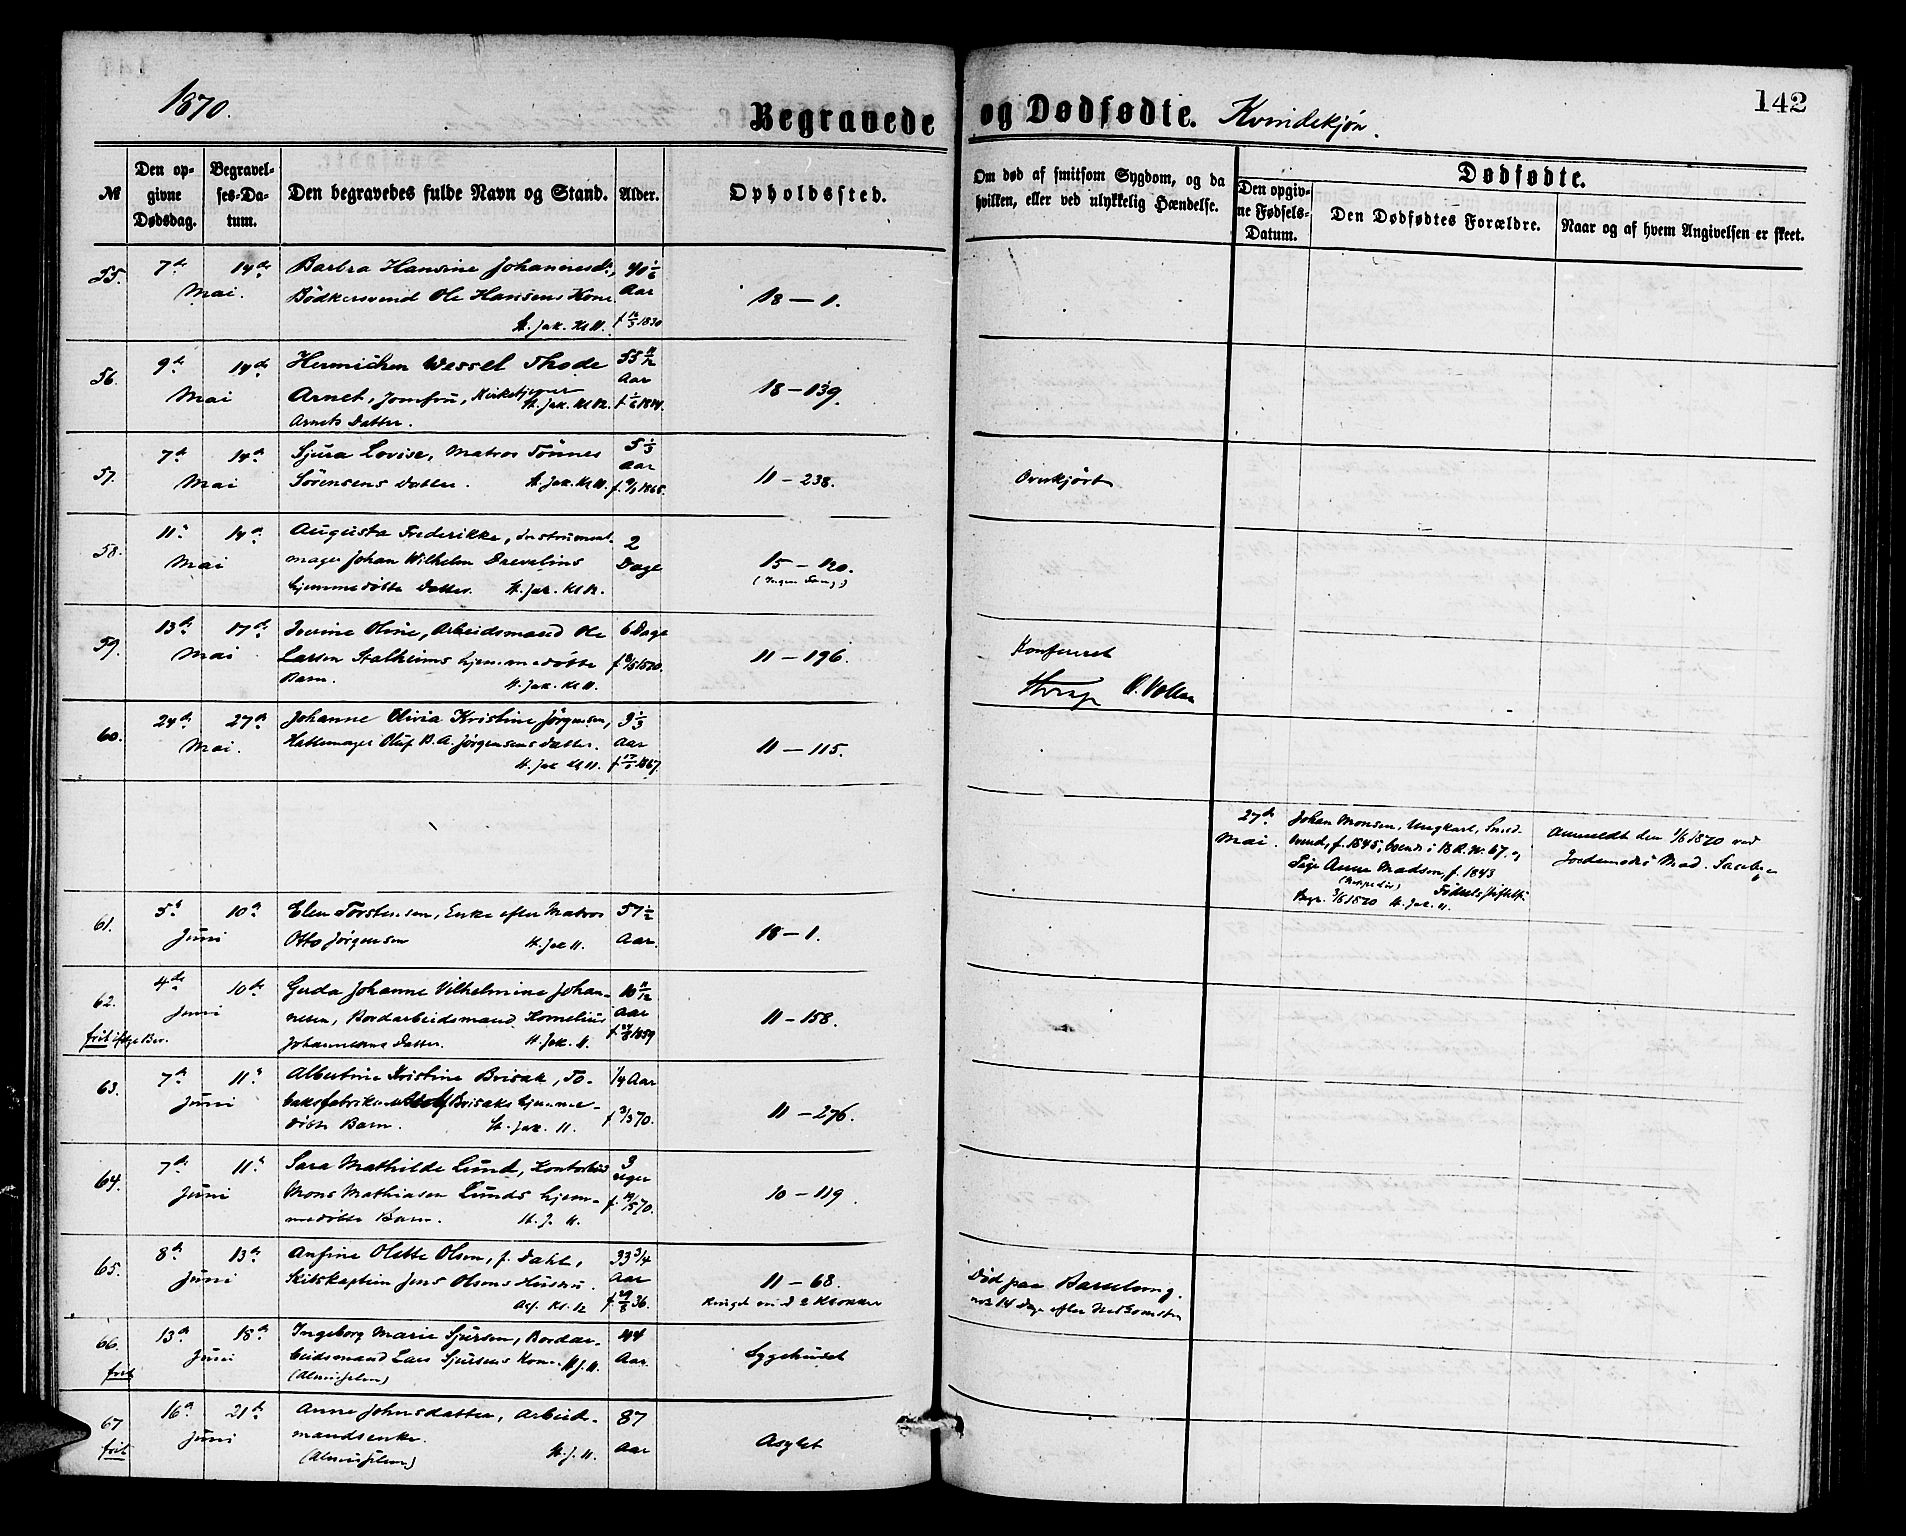 1870.
Begravede og Dødfødte. Kvindekjøn.
142
№
Den opgivne Dødsdag.
Begravelses-Datum.
Den begravedes fulde Navn og Stand.
Alder.
Opholdssted.
Om død af smitsom Sygdom, og da
hvilken, eller ved ulykkelig Hændelse.
Dødfødte.
Den opgivne Fødsels-Datum.
Den Dødfødtes Forældre.
Naar og af hvem Angivelsen er skeet.
55. 7de 14de Barbra Hansine Johannesdr., 40 1/6
Mai. Bødkersvend Ole Hansens Kone Aar 18 — 1.
St. Jak. Kl 11. f 12/3 1830
56. 9de 14de Wessel Thode 55 11/12
Mai Arnet, Jomfru, Kirketjener Aar 18 — 139.
Arnets Datter. St. Jak. Kl 11.
57. 7de 14de Sjura Lovise, Matros Tønnes 5 1/3
Mai Sørensens Datter. St. Jak. Kl 11. Aar 11 — 238. Overkjørt
58. 11te 14de Augusta Frederikke, Instrument- 2
Mai mager Johan Wilhelm Drevelins Dage 15 — 120.
hjemmedøbte Datter. St. Jak. Kl 11. (Ingen Sang)
59. 13de 17de Iverine Oline, Arbeidsmand Ole 6 Dage
Mai Larsen Stalheims hjemmedøbte 11 — 196. Konfereret
Barn. St. Jak. Kl 11.
60. 24de 27de Johanne Olivia Kristine Jørgensen, 3 1/3
Mai. Hattemager Oluf B. A. Jørgensens Datter. Aar 11 — 115.
St. Jak Kl 11.
27de Johan Monsen, Ungkarl, Smed- Anmeldt den 1/6 1870 ved
Mai. svend, f. 1845, Jordemoder Mad.
Pige Anne Madsen, f. 1843
Begr. 3/6 1870 St. Jak. 11.
61. 5te 10de Elen Torstensen, Enke efter Matros 57 1/2
Juni Otto Jørgensen St. Jak 11. Aar. 18 — 1.
62. 4de 10de Gerda Johanne Vilhelmine Johan- 10 11/12
Juni nesen, Bordarbeidsmand Kornelius Aar 11 — 158.
frit Johannesens Datter. St. Jak. 11.
63. 7de 11te Albertine Kristine Brisak, To- 1/4 Aar
Juni baksfabrikør Brisaks hjemme- 11 — 276.
døbte Barn. St. Jak. 11. f 3/3 70.
64. 7de 11te Sara Mathilde Lund, Kontorbud 3 Uger
Juni Mons Mathiasen Lunds hjem- 10 — 119
medøbte Barn. St. J. 11.
65. 8de 13de Anfine Olette Olsen, f. Dahl, 33 3/4
Juni Skibskaptein Jens Olsens Hustru. Aar 11 — 68. Død paa Barselseng.
Kl. 12 Ringet med 2 Klokker 14 Dage efter Nedkomsten
66. 13de 18de Ingeborg Marie Sjursen, Bordar-
frit Juni beidsmand Lars Sjursens Kone St. J. 11. 44 Aar. Sygehuset
67 16de 21de Anne Johnsdatter, Arbeids- 87
frit Juni mandsenke. St. J. 11. Aar Asylet